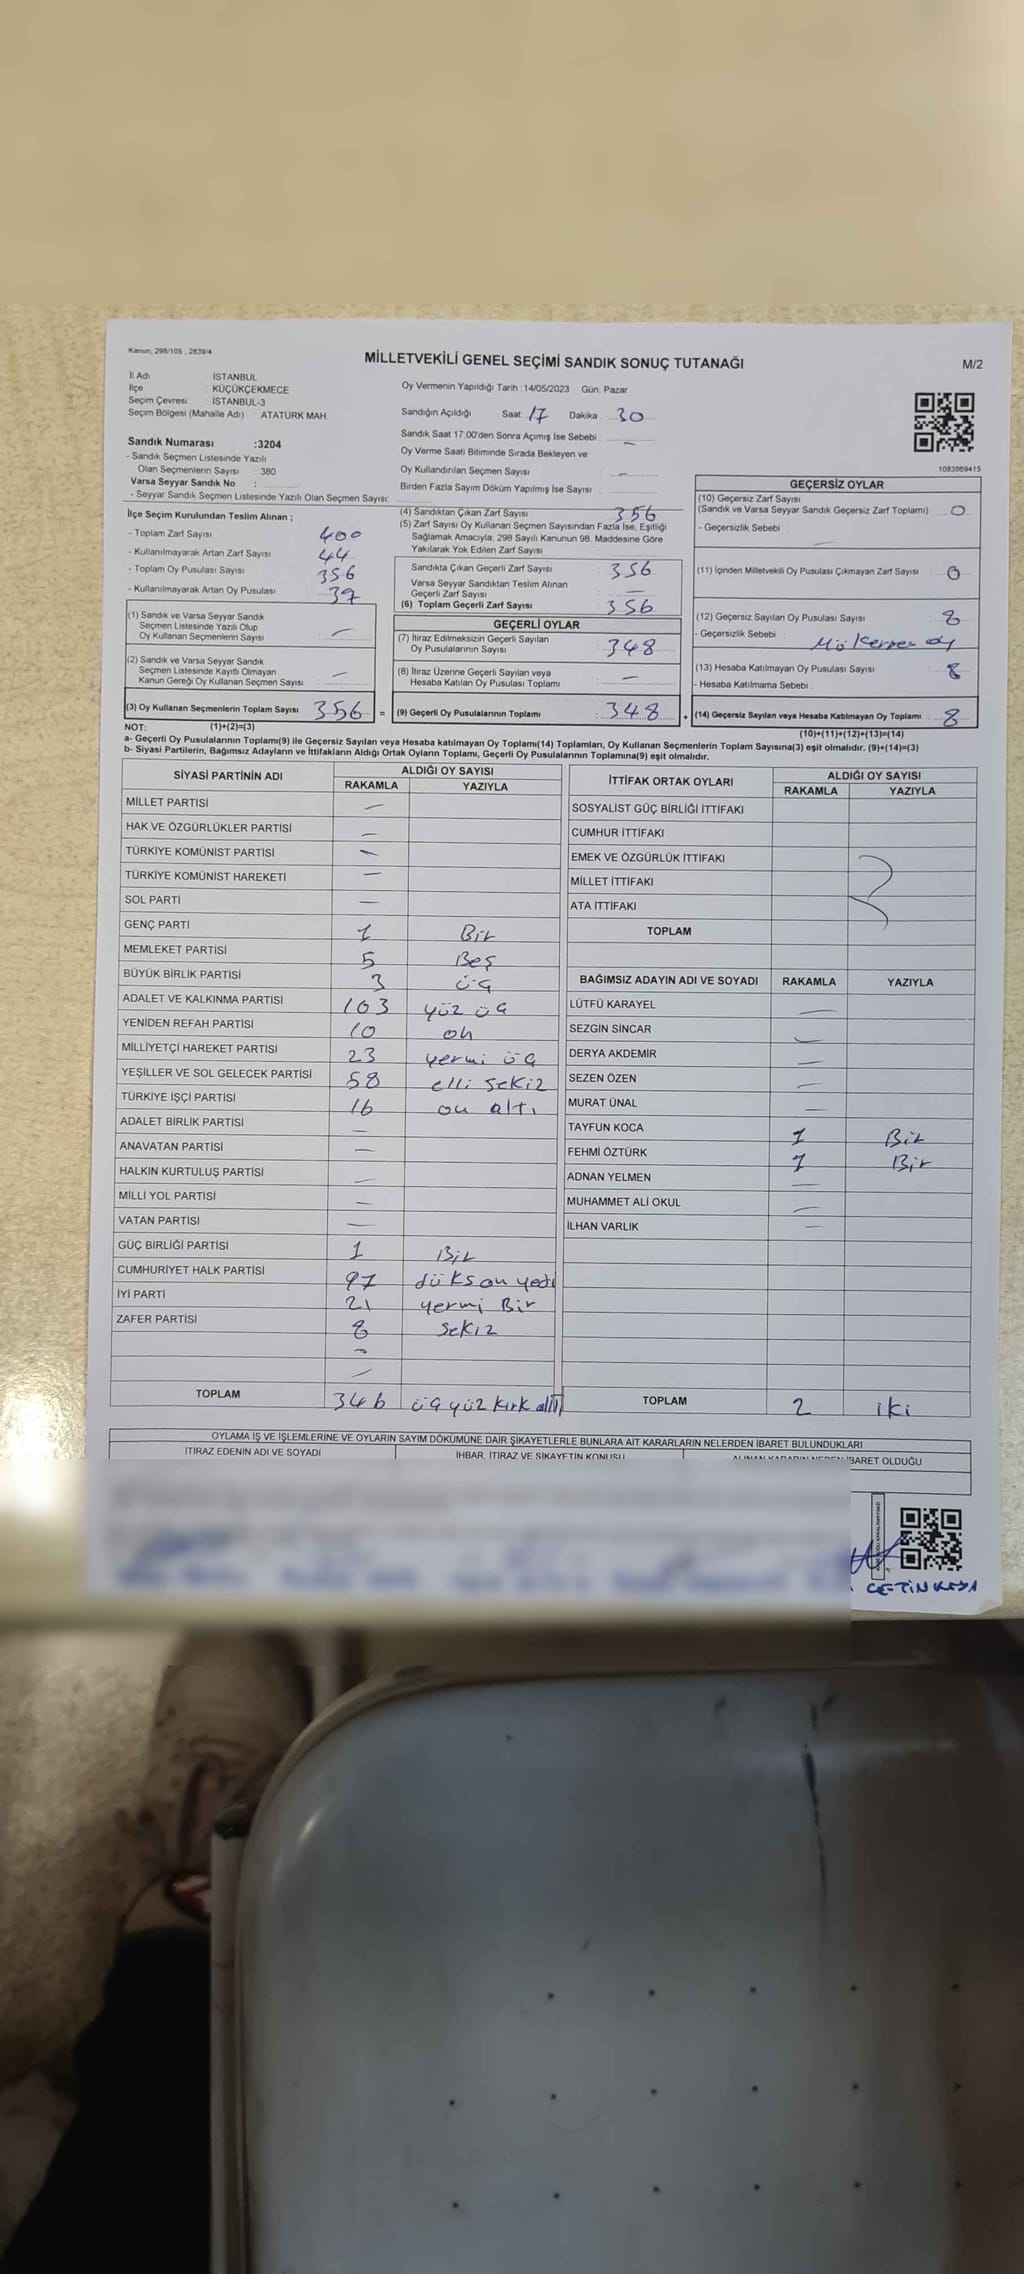 Kanun; 298/105 , 2839/4
MİLLETVEKİLİ GENEL SEÇİMİ SANDIK SONUÇ TUTANAĞI
M/2
İl Adı : İSTANBUL
İlçe : KÜÇÜKÇEKMECE
Seçim Çevresi : İSTANBUL-3
Seçim Bölgesi (Mahalle Adı) : ATATÜRK MAH.
Sandık Numarası :3204
- Sandık Seçmen Listesinde Yazılı
Olan Seçmenlerin Sayısı : 380
Varsa Seyyar Sandık No :
- Seyyar Sandık Seçmen Listesinde Yazılı Olan Seçmen Sayısı:
Oy Vermenin Yapıldığı Tarih : 14/05/2023 Gün: Pazar
Sandığın Açıldığı Saat 17 Dakika 30
Sandık Saat 17:00'den Sonra Açımış İse Sebebi : —
Oy Verme Saati Bitiminde Sırada Bekleyen ve
Oy Kullandırılan Seçmen Sayısı : —
Birden Fazla Sayım Döküm Yapılmış İse Sayısı :
1083869415
İlçe Seçim Kurulundan Teslim Alınan ;
- Toplam Zarf Sayısı 400
- Kullanılmayarak Artan Zarf Sayısı 44
- Toplam Oy Pusulası Sayısı 356
- Kullanılmayarak Artan Oy Pusulası 39
(1) Sandık ve Varsa Seyyar Sandık
Seçmen Listesinde Yazılı Olup
Oy Kullanan Seçmenlerin Sayısı : —
(2) Sandık ve Varsa Seyyar Sandık
Seçmen Listesinde Kayıtlı Olmayan
Kanun Gereği Oy Kullanan Seçmen Sayısı : —
(3) Oy Kullanan Seçmenlerin Toplam Sayısı 356 =
(1)+(2)=(3)
(4) Sandıktan Çıkan Zarf Sayısı : 356
(5) Zarf Sayısı Oy Kullanan Seçmen Sayısından Fazla İse, Eşitliği
Sağlamak Amacıyla; 298 Sayılı Kanunun 98. Maddesine Göre
Yakılarak Yok Edilen Zarf Sayısı :
Sandıkta Çıkan Geçerli Zarf Sayısı : 356
Varsa Seyyar Sandıktan Teslim Alınan
Geçerli Zarf Sayısı : —
(6) Toplam Geçerli Zarf Sayısı : 356
GEÇERLİ OYLAR
(7) İtiraz Edilmeksizin Geçerli Sayılan
Oy Pusulalarının Sayısı : 348
(8) İtiraz Üzerine Geçerli Sayılan veya
Hesaba Katılan Oy Pusulası Toplamı : —
(9) Geçerli Oy Pusulalarının Toplamı : 348 +
GEÇERSİZ OYLAR
(10) Geçersiz Zarf Sayısı
(Sandık ve Varsa Seyyar Sandık Geçersiz Zarf Toplamı) : 0
- Geçersizlik Sebebi : —
(11) İçinden Milletvekili Oy Pusulası Çıkmayan Zarf Sayısı : 0
(12) Geçersiz Sayılan Oy Pusulası Sayısı : 8
- Geçersizlik Sebebi : oy
(13) Hesaba Katılmayan Oy Pusulası Sayısı : 8
- Hesaba Katılmama Sebebi :
(14) Geçersiz Sayılan veya Hesaba Katılmayan Oy Toplamı : 8
(10)+(11)+(12)+(13)=(14)
NOT:
a- Geçerli Oy Pusulalarının Toplamı(9) ile Geçersiz Sayılan veya Hesaba katılmayan Oy Toplamı(14) Toplamları, Oy Kullanan Seçmenlerin Toplam Sayısına(3) eşit olmalıdır. (9)+(14)=(3)
b- Siyasi Partilerin, Bağımsız Adayların ve İttifakların Aldığı Ortak Oyların Toplamı, Geçerli Oy Pusulalarının Toplamına(9) eşit olmalıdır.
SİYASİ PARTİNİN ADI ALDIĞI OY SAYISI
RAKAMLA YAZIYLA
MİLLET PARTİSİ —
HAK VE ÖZGÜRLÜKLER PARTİSİ —
TÜRKİYE KOMÜNİST PARTİSİ —
TÜRKİYE KOMÜNİST HAREKETİ —
SOL PARTİ —
GENÇ PARTİ 1 Bir
MEMLEKET PARTİSİ 5 Beş
BÜYÜK BİRLİK PARTİSİ 3 üç
ADALET VE KALKINMA PARTİSİ 103 yüz üç
YENİDEN REFAH PARTİSİ 10 on
MİLLİYETÇİ HAREKET PARTİSİ 23 yermi üç
YEŞİLLER VE SOL GELECEK PARTİSİ 58 elli sekiz
TÜRKİYE İŞÇİ PARTİSİ 16 on altı
ADALET BİRLİK PARTİSİ —
ANAVATAN PARTİSİ —
HALKIN KURTULUŞ PARTİSİ —
MİLLİ YOL PARTİSİ —
VATAN PARTİSİ —
GÜÇ BİRLİĞİ PARTİSİ 1 Bir
CUMHURİYET HALK PARTİSİ 97 düksan yedi
İYİ PARTİ 21 yermi Bir
ZAFER PARTİSİ 8 sekiz
—
—
TOPLAM 346 üçyüz kırk altı
İTTİFAK ORTAK OYLARI ALDIĞI OY SAYISI
RAKAMLA YAZIYLA
SOSYALİST GÜÇ BİRLİĞİ İTTİFAKI
CUMHUR İTTİFAKI
EMEK VE ÖZGÜRLÜK İTTİFAKI
MİLLET İTTİFAKI
ATA İTTİFAKI
TOPLAM
BAĞIMSIZ ADAYIN ADI VE SOYADI RAKAMLA YAZIYLA
LÜTFÜ KARAYEL —
SEZGİN SİNCAR —
DERYA AKDEMİR —
SEZEN ÖZEN —
MURAT ÜNAL —
TAYFUN KOCA 1 Bir
FEHMİ ÖZTÜRK 1 Bir
ADNAN YELMEN —
MUHAMMET ALİ OKUL —
İLHAN VARLIK —
TOPLAM 2 iki
OYLAMA İŞ VE İŞLEMLERİNE VE OYLARIN SAYIM DÖKÜMÜNE DAİR ŞİKAYETLERLE BUNLARA AİT KARARLARIN NELERDEN İBARET BULUNDUKLARI
İTİRAZ EDENİN ADI VE SOYADI İHBAR, İTİRAZ VE ŞİKAYETİN KONUSU ALINAN KARARIN NEDEN İBARET OLDUĞU
ÇETİNKAYA